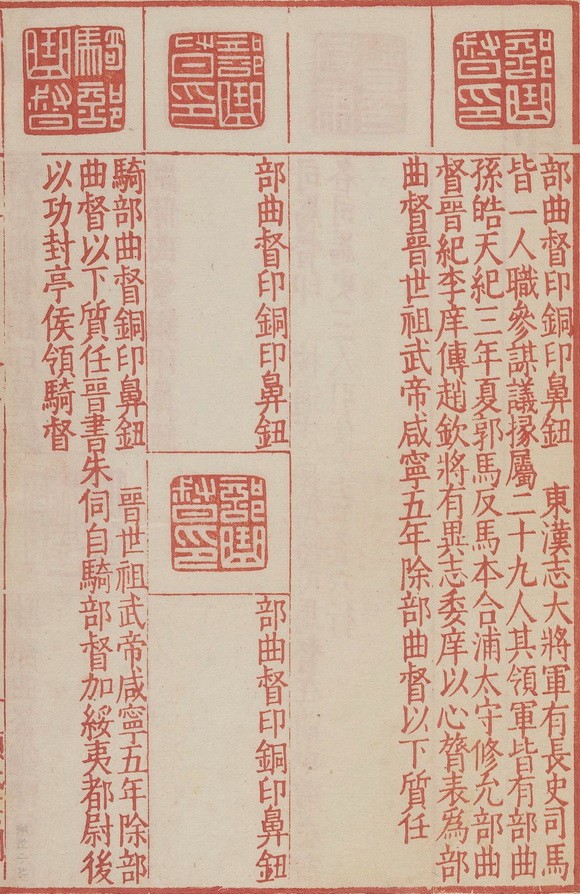 部曲督印
部曲督印銅印鼻鈕　東漢志大將軍有長史司馬
皆一人職參謀議掾屬二十九人其領軍皆有部曲
孫皓天紀三年夏郭馬反馬本合浦太守修允部曲
督晉紀李庠傳趙欽將有異志委庠以心膂表爲部
曲督晉世祖武帝咸寧五年除部曲督以下質任
部曲督印
部曲督印銅印鼻鈕
部曲督印
部曲督印銅印鼻鈕
騎部曲督
騎部曲督銅印鼻鈕　晉世祖武帝咸寧五年除部
曲督以下質任晉書朱伺自騎部督加綏夷都尉後
以功封亭侯領騎督